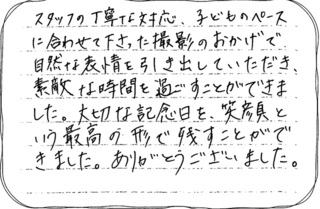 スタッフの丁寧な対応、子どものペース
に合わせて下さった撮影のおかげで
自然な表情を引き出していただき、
素敵な時間を過ごすことができま
した。大切な記念日を、笑顔と
いう最高の形で残すことがで
きました。ありがとうございました。